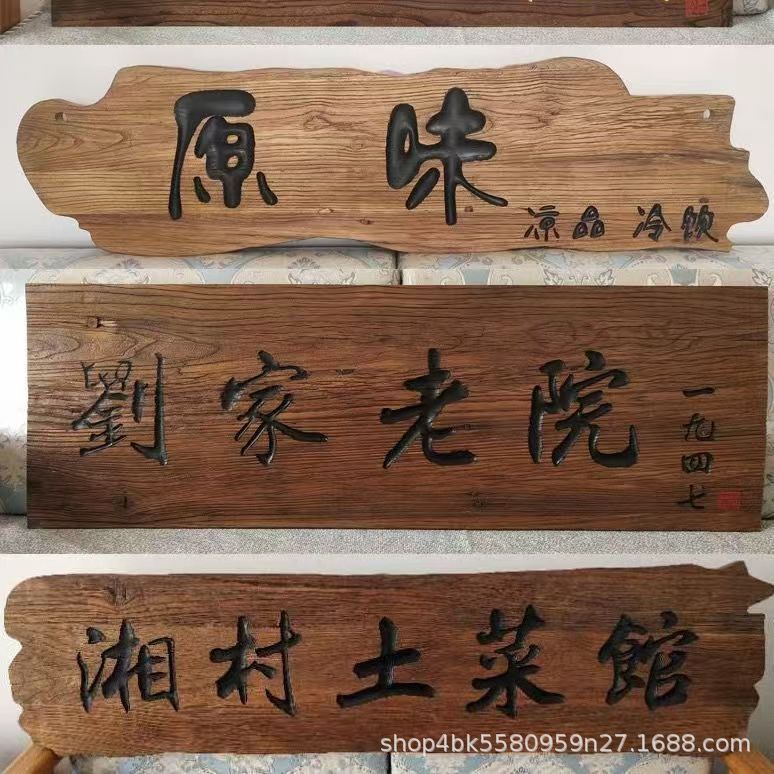 原味
凉品 冷饮
劉家老院
一九四七
湘村土菜館
shop4bk5580959n27.1688.com